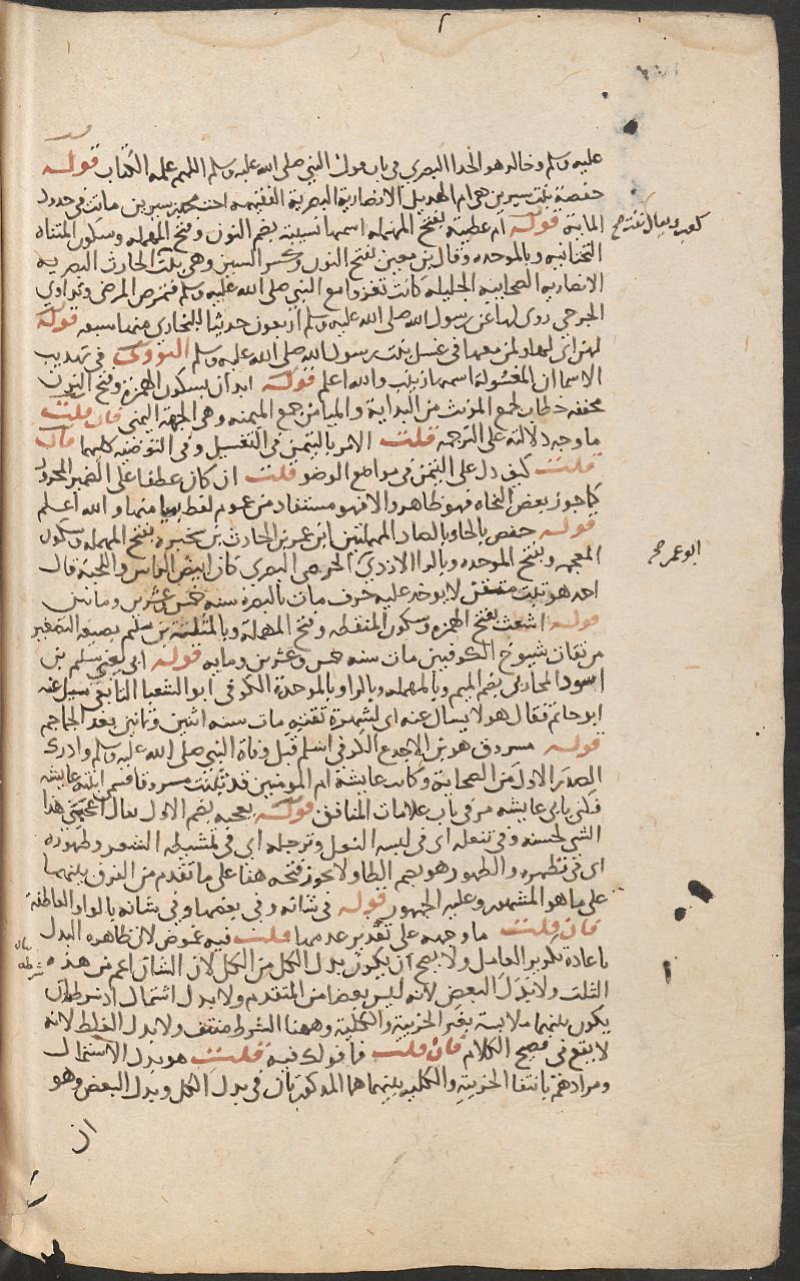 عليه وسلم وخالد هو الحذا البصري في باب قول النبي صلى الله عليه وسلم اللهم علمه الكتاب قوله
حفصة بنت سيرين هي ام الهذيل الانصارية البصرية الفقيهه اخت محمد بن سيرين ماتت في حدود
الماية قوله ام عطية بفتح المهمله اسمها نسيبة بضم النون وفتح المهمله وسكون المثناه
التحتانيه وبالموحده وقال بن معين بفتح النون وكسر السين وهي بنت الحارث البصريه
الانصاريه الصحابية الجليله كانت تغزو مع النبي صلى الله عليه وسلم فتمرض المرضى وتداوي
الجرحى روى لها عن رسول الله صلى الله عليه وسلم اربعون حديثا للبخاري منها سبعه قوله
لهن اي لها ولمن معها في غسل بنت رسول الله صلى الله عليه وسلم النووي في تهذيب
الاسما ان المغسولة اسمها زينب والله اعلم قوله ابدان بسكون الهمزة وفتح النون
مخففه خطاب لجمع المؤنث من البداية والميامن جمع الميمنه وهي الجهة اليمنى فان قلت
ما وجه دلالته على الترجمه قلت الامر بالتيمن في التغسيل وفي التوضيه كليهما فان
قلت كيف دل على التيمن في مواضع الوضو قلت ان كان عطفا على الضمير المجرور
كما جوز بعض النحاه فهو ظاهر والا فهو مستفاد من عموم لفظ بميامنها والله اعلم
قوله حفص بالحا وبالصاد المهملتين ابن عمر بن الحارث بن سخبره بفتح المهمله وسكون
المعجمه وبفتح الموحده وبالرا الازدي الحوضي البصري كان ابيض الراس واللحية قال
احمد هو ثبت متقن لا يوخذ عليه حرف مات بالبصرة سنه خمس وعشرين وماتين
قوله اشعث بفتح الهمزه وسكون المنقطه وفتح المهملة وبالمثلثة بن سليم بصيغه التصغير
من ثقات شيوخ الكوفيين مات سنه خمس وعشرين ومايه قوله ابي يعني سليم بن
اسود المحاربي بضم الميم وبالمهمله وبالرا وبالموحدة الكوفي ابو الشعثا التابعي سيل عنه
ابو حاتم فقال هو لا يسال عنه اي لشهرة ثقتيه مات سنه اثنين وثمانين بعد الجماجم
قوله مسروق هو بن الاجدع الكوفي اسلم قبل وفاة النبي صلى الله عليه وسلم وادرك
الصدر الاول من الصحابة وكانت عايشة ام المومنين قد تبنت مسروقا فسمى ابنته عايشه
فكنى بابي عايشه مر في باب علامات المنافق قوله يعجبه بضم الاول يقال اعجبني هذا
الشي لحسنه وفي تنعله اي في لبسه النعل وترجله اي في تمشيطه الشعر وطهوره
اي في تطهره والطهور هو بضم الطا ولا يجوز فتحه هنا على ما تقدم من الفرق بينهما
على ما هو المشهور وعليه الجمهور قوله في شانه وفي بعضها وفي شانه بالواو العاطفة
فان قلت ما وجهه على تقدير عدمها قلت فيه غموض لان ظاهره البدل
باعادة تكرير العامل ولا يصح ان يكون بدل الكل من الكل لان الشان اعم من هذه
الثلث ولا بدل البعض لانه ليس بعضا من المتقدم ولا بدل اشتمال اذ شرطه ان
يكون بينهما ملابسة بغير الجزيية والكلية وههنا الشرط منتف ولا بدل الغلط لانه
لا يقع في فصيح الكلام فان قلت فما قولك فيه قلت هو بدل الاشتمال
ومرادهم بانتفا الجزيية والكلية بينهما هما المذكورتان في بدل الكل وبدل البعض وهو
ان
ابو عمر صح